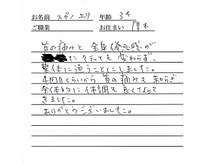 お名前 スガノ エリ 年齢 34
ご職業 お住まい 厚木
首の痛みと全身倦怠感が
たクても変わらず、
整体に通うことにしました。
4回目くらいから首の痛みも和らぎ
全体的に体調も良くなって
きました。
ありがとうございました。